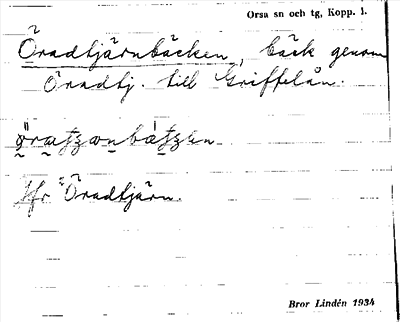 Orsa sn och tg, Kopp. l.
Öradtjärnbäcken, bäck genom
Öradtj. till Griffelån.
Jfr Öradtjärn.
Bror Lindén 1934